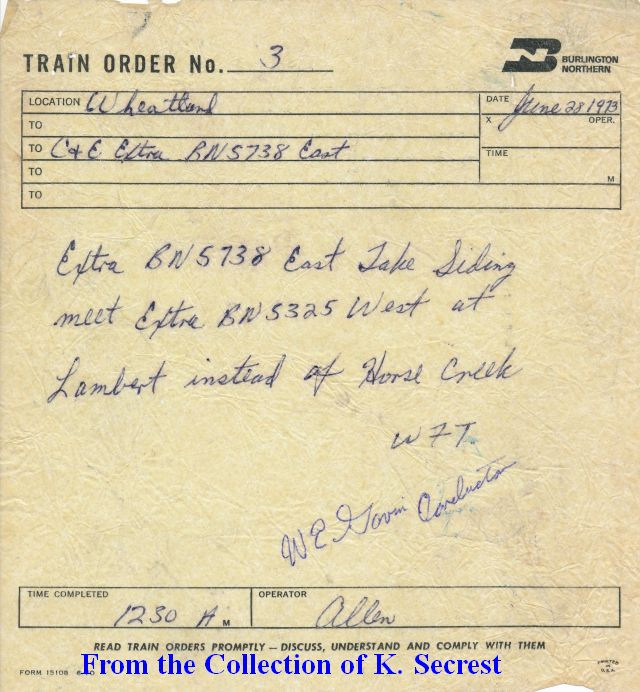 TRAIN ORDER No. 3
BURLINGTON NORTHERN
LOCATION Wheatland
DATE June 28 1973
TO
X OPER.
TO C+E Extra BN5738 East
TIME
M
TO
TO
Extra BN5738 East Take Siding
meet Extra BN5325 West at
Lambert instead of Horse Creek
WFT.
WE Govin Conductor
TIME COMPLETED 1230 A M
OPERATOR Allen
READ TRAIN ORDERS PROMPTLY — DISCUSS, UNDERSTAND AND COMPLY WITH THEM
PRINTED IN U.S.A.
FORM 15108
From the Collection of K. Secrest